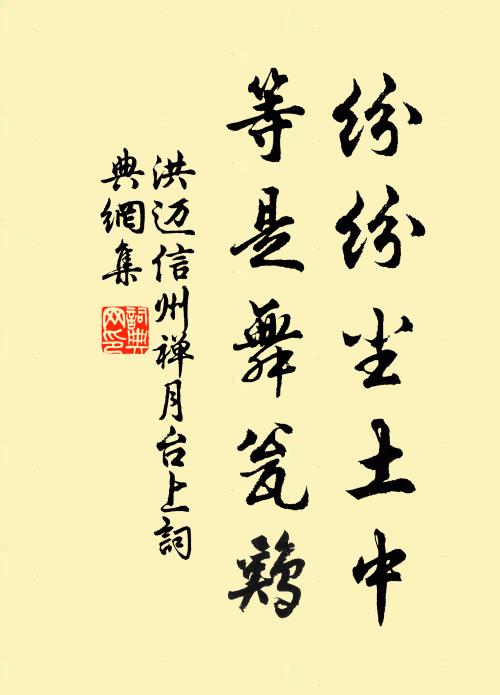 纷纷尘土中
等是舞瓮鷄
洪迈信州禅月台上詞
典網集
詞典
网印